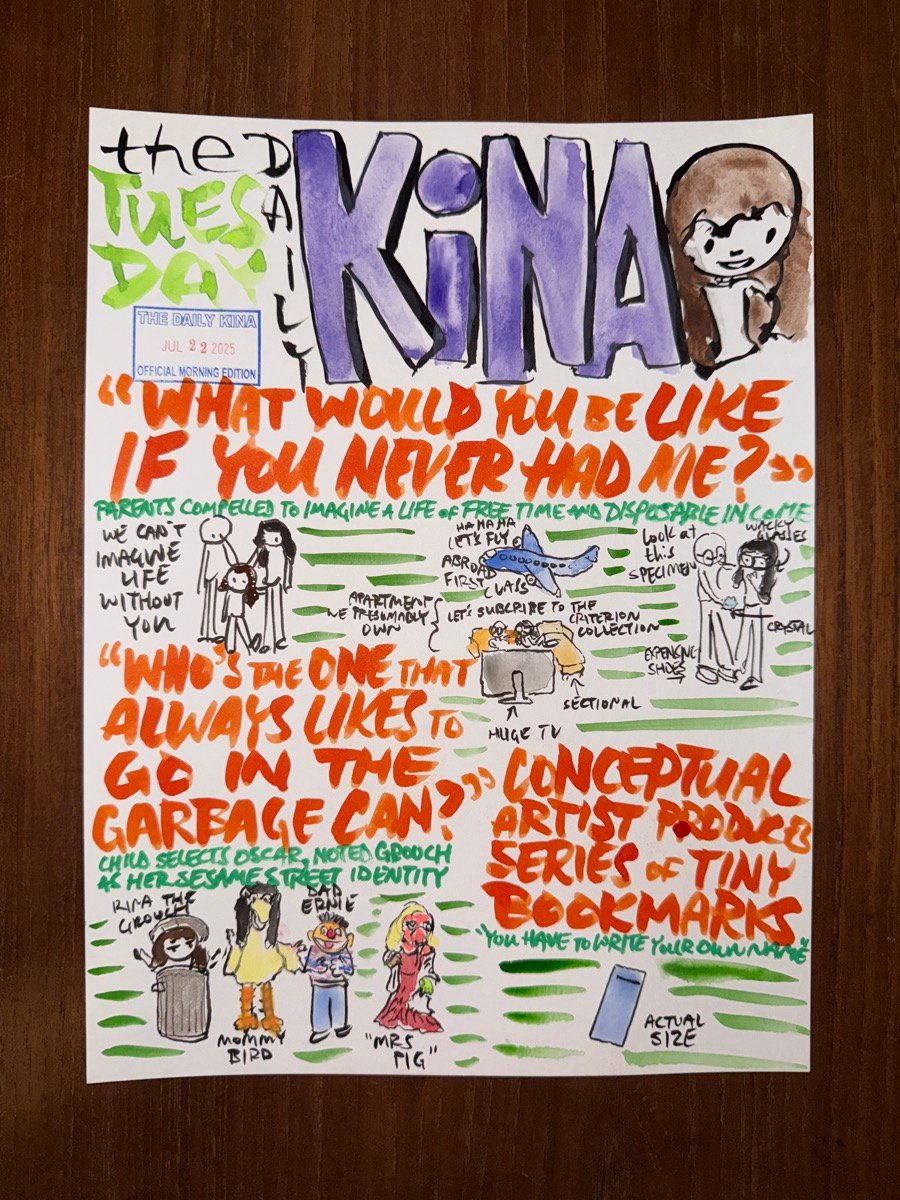 the DAILY KiNA
TUES
DAY
THE DAILY KINA
JUL 22 2025
OFFICIAL MORNING EDITION
"WHAT WOULD YOU BE LIKE
IF YOU NEVER HAD ME?"
PARENTS COMPELLED TO IMAGINE A LIFE OF FREE TIME AND DISPOSABLE INCOME
WE CAN'T
IMAGINE
LIFE
WITHOUT
YOU
HA HA HA
LET'S FLY
ABROAD
FIRST
CLASS
APARTMENT
WE PRESUMABLY
OWN
LET'S SUBSCRIBE TO THE
CRITERION
COLLECTION
SECTIONAL
HUGE TV
LOOK AT
this
SPECIMEN
WACKY
GLASSES
CRYSTAL
EXPENSIVE
SHOES
"WHO'S THE ONE THAT
ALWAYS LIKES TO
GO IN THE
GARBAGE CAN?"
CHILD SELECTS OSCAR, NOTED GROUCH
AS HER SESAME STREET IDENTITY
KINA THE
GROUCH
MOMMY
BIRD
DAD
ERNIE
"MRS
PIG"
CONCEPTUAL
ARTIST PRODUCES
SERIES OF TINY
BOOKMARKS
"YOU HAVE TO WRITE YOUR OWN NAME"
ACTUAL
SIZE